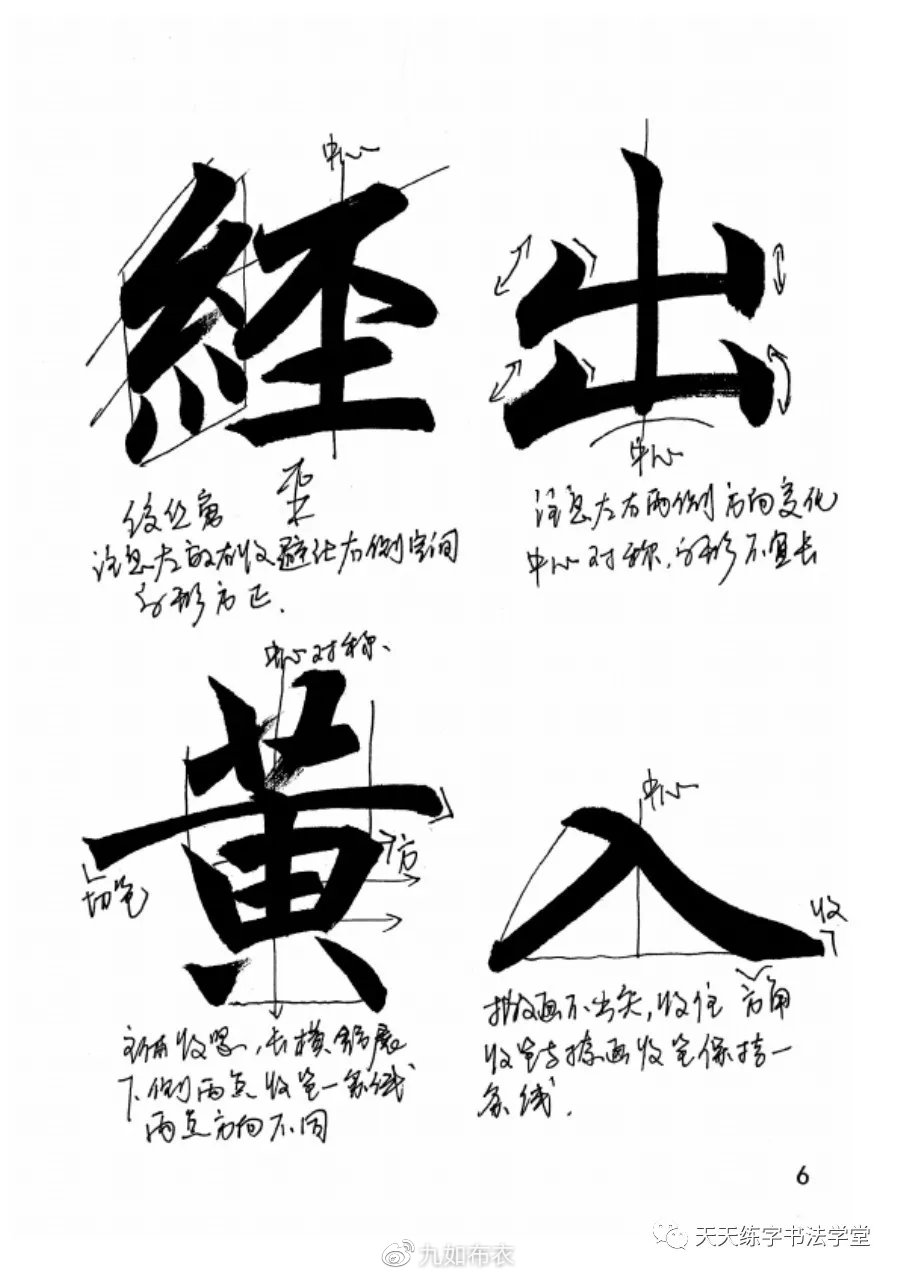 中心
経 出
中心
绞丝旁
注意左放右收避让右侧空间
字形方正.
注意左右两侧方向变化
中心对称,字形不宜长
中心对称、
黄
方
切笔
中心
入
收
主体收紧,长横舒展
下侧两点收笔一条线
两点方向不同
撇画不出尖,收住 方角
收笔与捺画收笔保持一
条线.
6
天天练字书法学堂
九如布衣